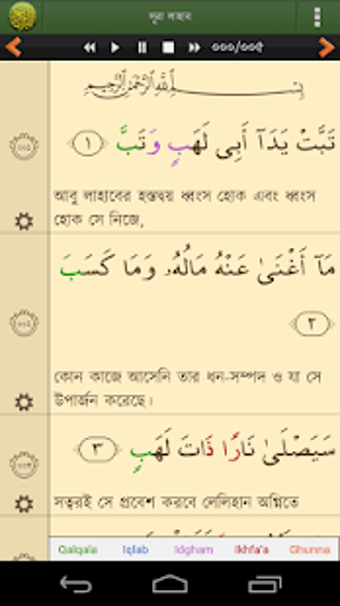 সূরা লাহাব
০০০/০০৫
تَبَّتْ يَدَآ أَبِى لَهَبٍ وَتَبَّ ١
০০১
আবু লাহাবের হস্তদ্বয় ধ্বংস হোক এবং ধ্বংস
হোক সে নিজে,
مَآ أَغْنَىٰ عَنْهُ مَالُهُۥ وَمَا كَسَبَ
٢
০০২
কোন কাজে আসেনি তার ধন-সম্পদ ও যা সে
উপার্জন করেছে।
سَيَصْلَىٰ نَارًا ذَاتَ لَهَبٍ ٣
০০৩
সত্বরই সে প্রবেশ করবে লেলিহান অগ্নিতে
Qalqala Iqlab Idgham Ikhfa'a Ghunna